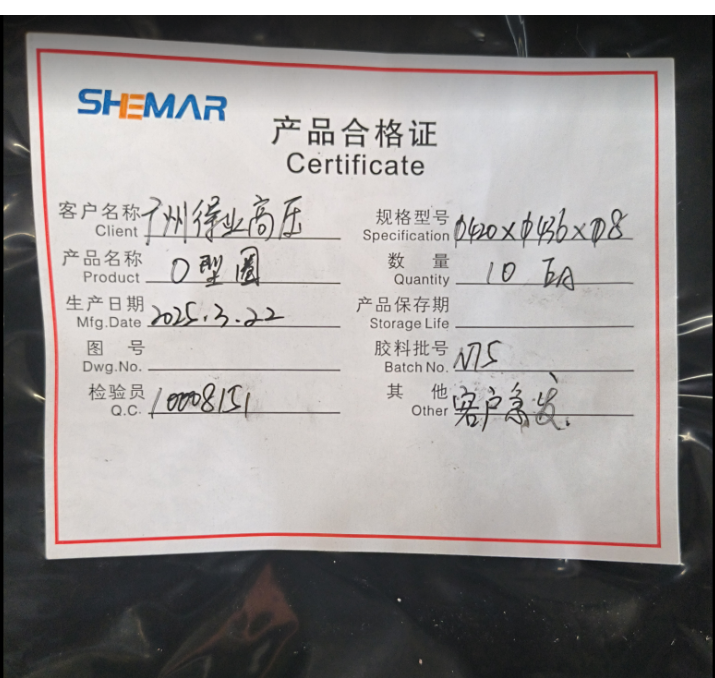 SHEMAR
产品合格证
Certificate
客户名称 广州得业高压 规格型号 Φ420×Φ436×Φ8
Client Specification
产品名称 O型圈 数量 10 EA
Product Quantity
生产日期 2025.3.22 产品保存期
Mfg.Date Storage Life
图号 胶料批号 N75
Dwg.No. Batch No.
检验员 10008151 其他 客户急发
Q.C. Other